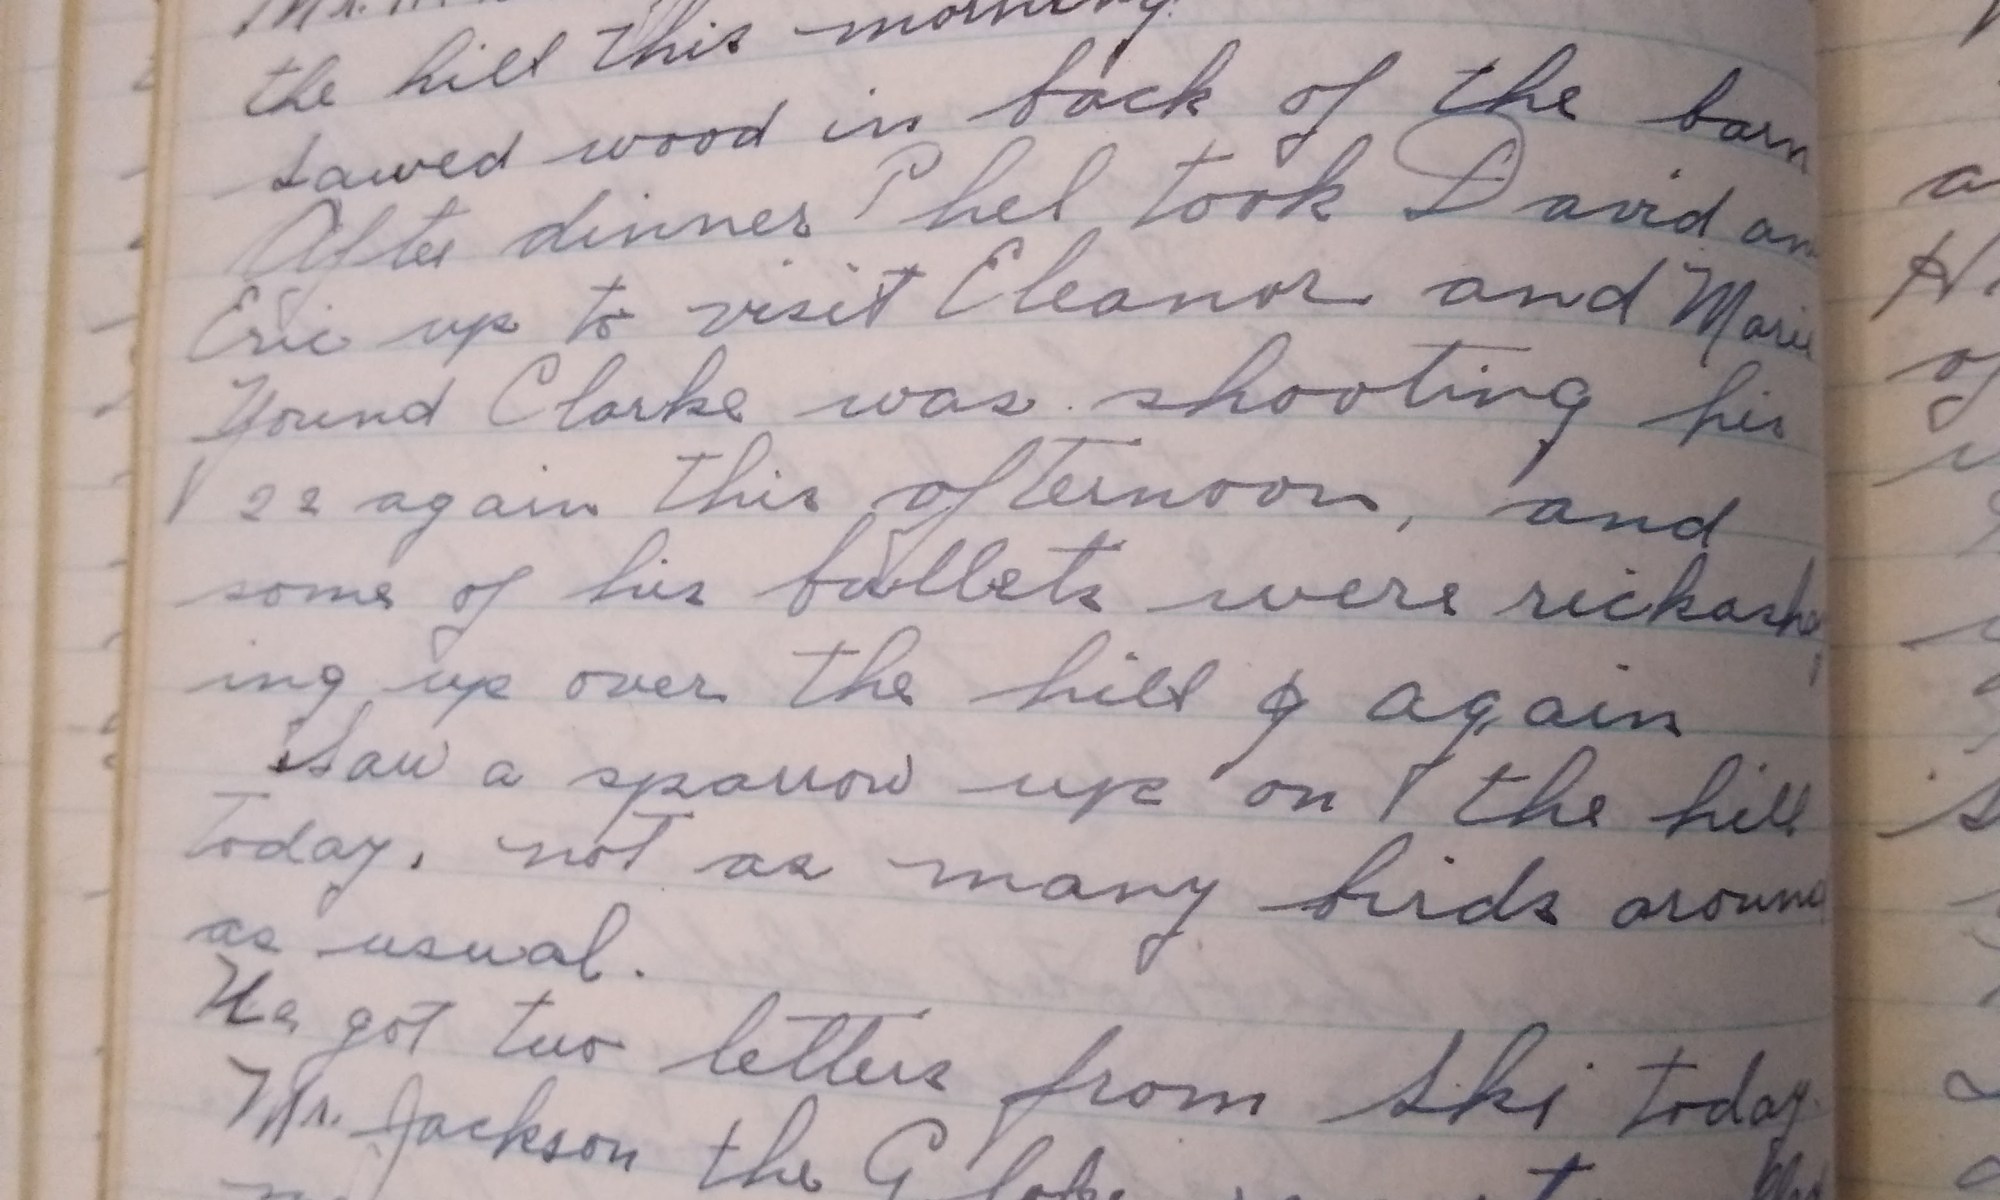 the hill this morning.
sawed wood in back of the barn
After dinner Phel took David an
Eric up to visit Eleanor and Marie
Yound Clarke was shooting his
22 again this afternoon, and
some of his bullets were rickash
ing up over the hill & again
Saw a sparrow up on the hill
today, not as many birds around
as usual.
He got two letters from Ski today.
Mr. Jackson the Globe